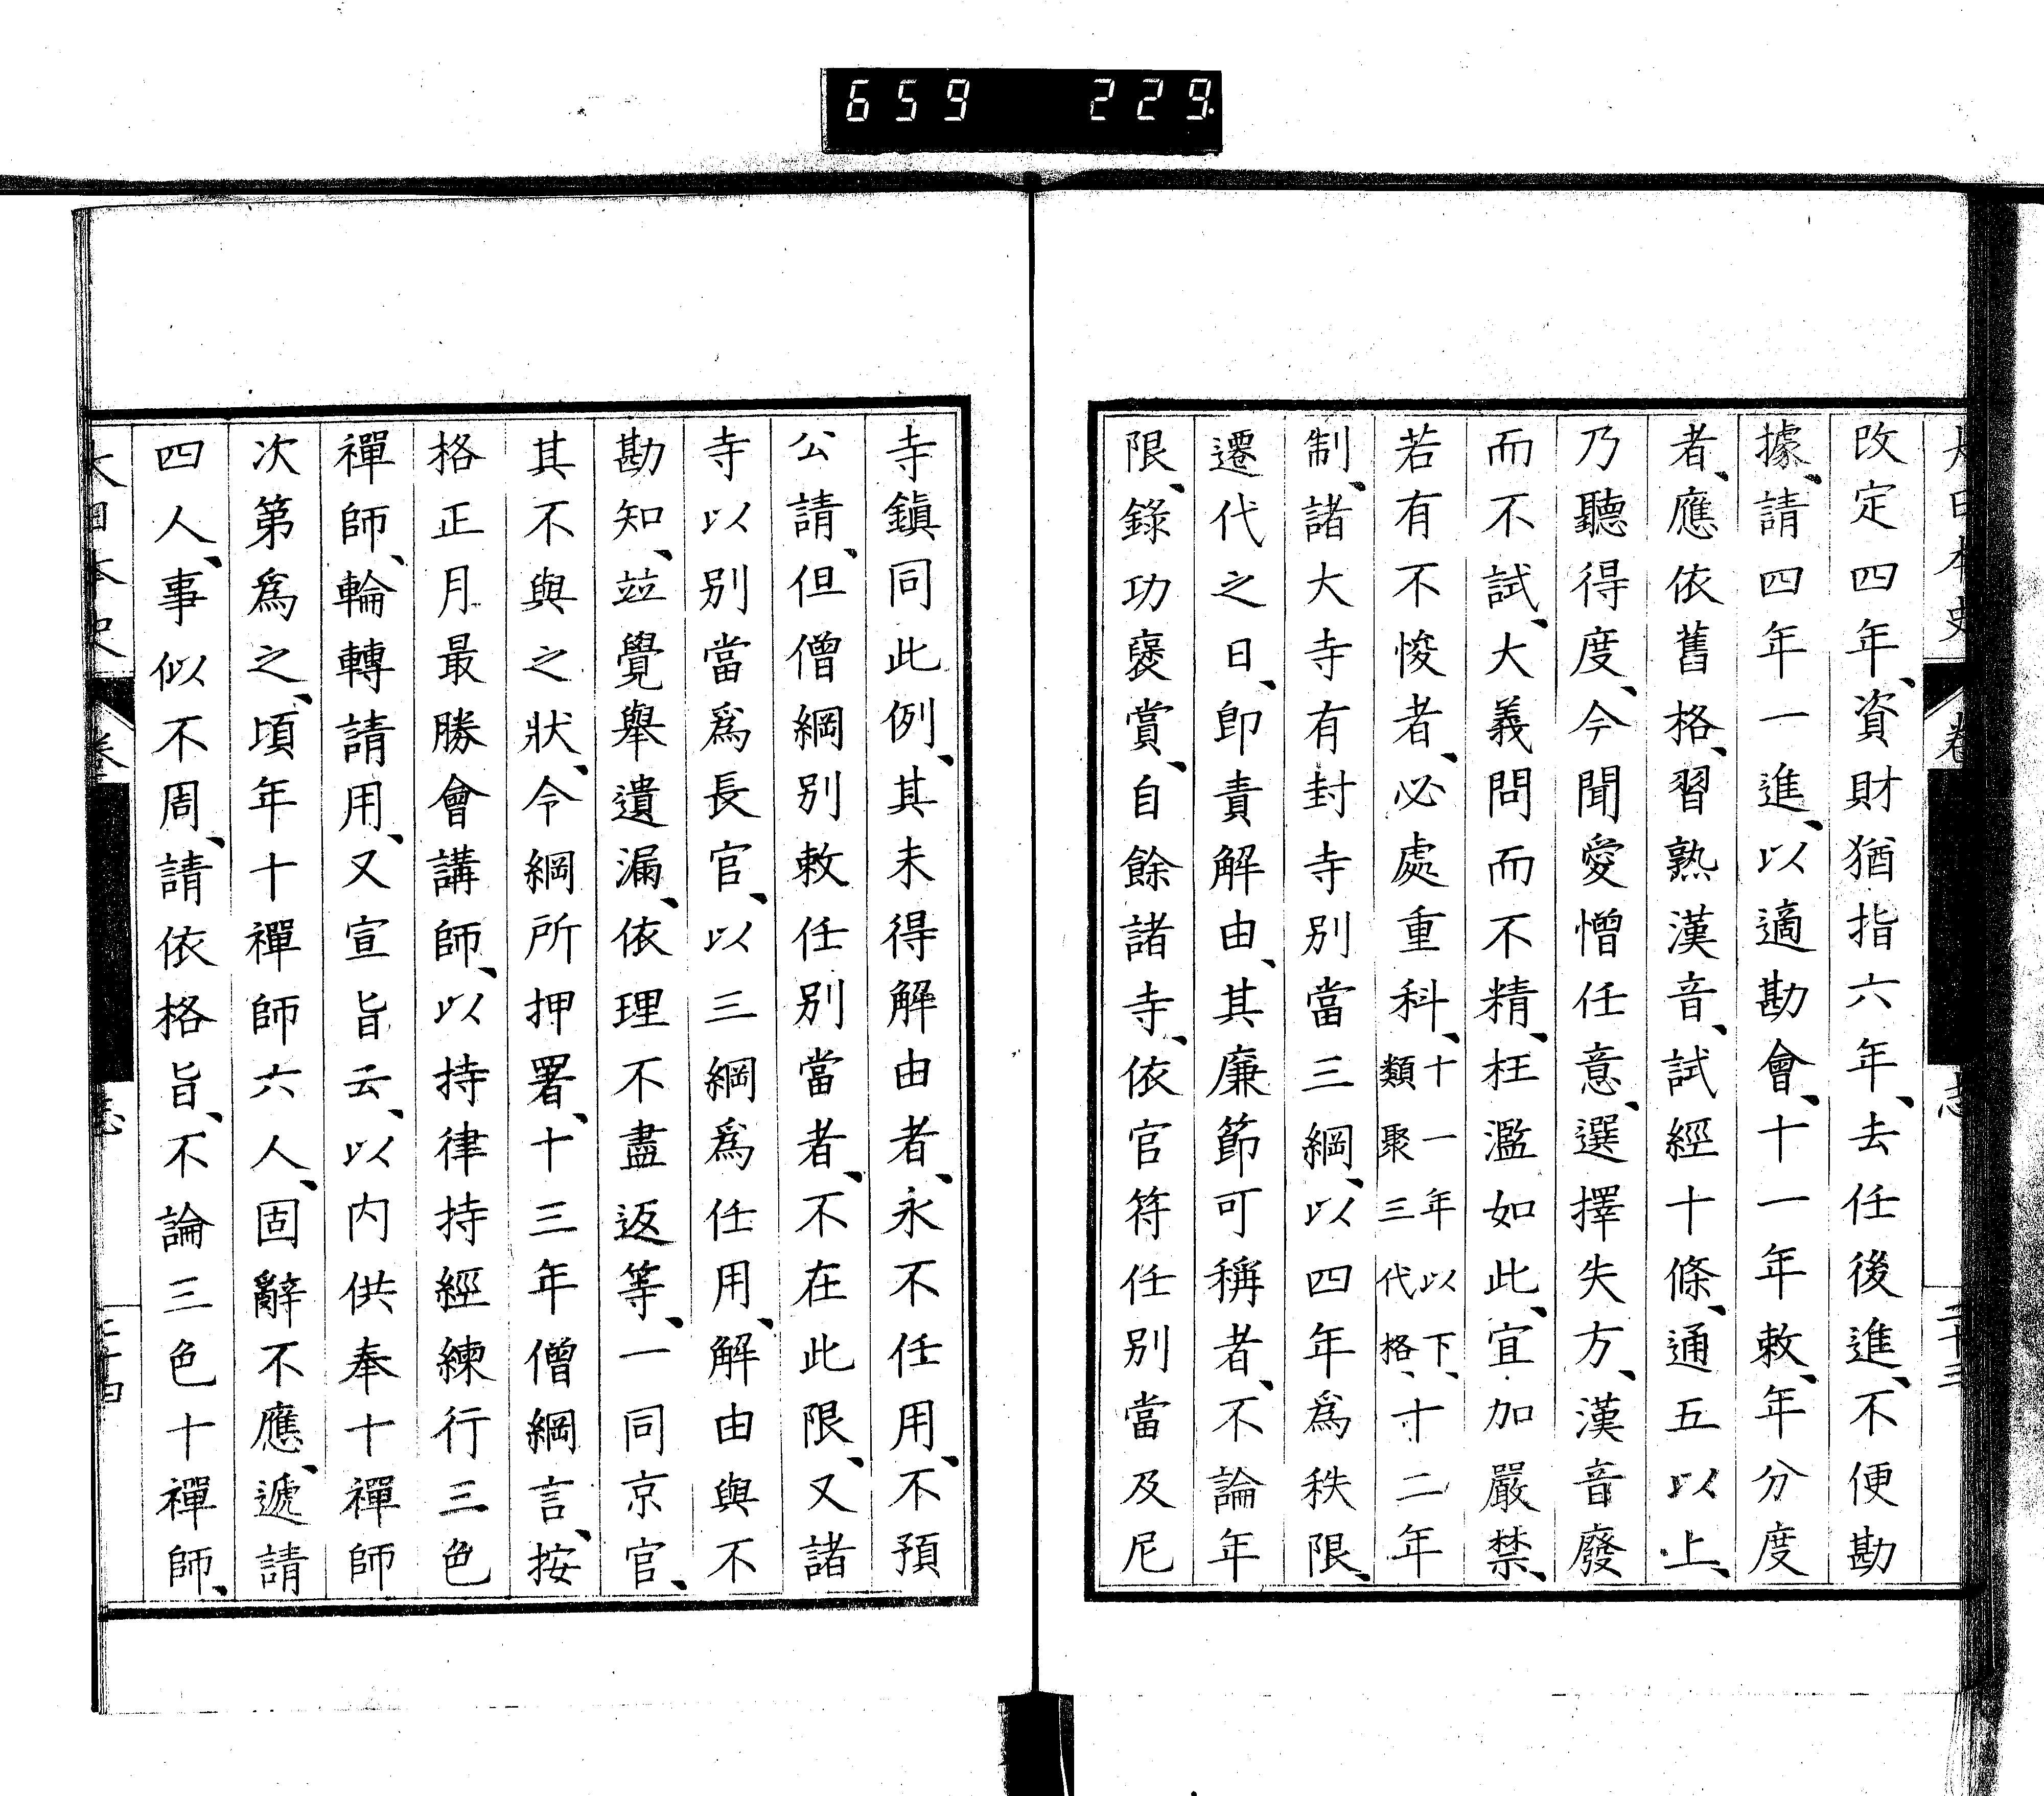 659 229
改定四年、資財猶指六年、去任後進、不便勘
據、請四年一進、以適勘會、十一年敕、年分度
者、應依舊格、習熟漢音、試經十條、通五以上、
乃聽得度、今聞愛憎任意、選擇失方、漢音廢
而不試、大義問而不精、枉濫如此、宜加嚴禁、
若有不悛者、必處重科、十一年以下、類聚三代格、十二年
制、諸大寺有封寺別當三綱、以四年爲秩限、
遷代之日、即責解由、其廉節可稱者、不論年
限、錄功褒賞、自餘諸寺、依官符任別當及尼
寺鎮同此例、其未得解由者、永不任用、不預
公請、但僧綱別敕任別當者、不在此限、又諸
寺以別當爲長官、以三綱爲任用、解由與不
勘知、竝覺舉遺漏、依理不盡返等、一同京官、
其不與之狀、令綱所押署、十三年僧綱言、按
格正月最勝會講師、以持律持經練行三色
禪師、輪轉請用、又宣旨云、以内供奉十禪師
次第爲之、頃年十禪師六人、固辭不應、遞請
四人、事似不周、請依格旨、不論三色十禪師、
大日本史
卷
志